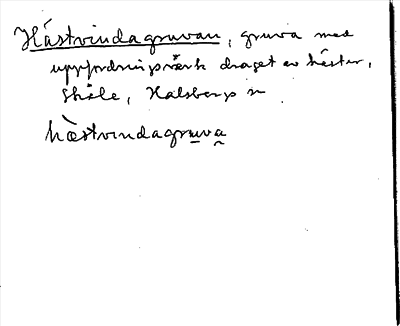 Hästvindagruvan, gruva med
uppfordringsverk draget av hästar,
Skåle, Halsbergs sn
hästvindagruva